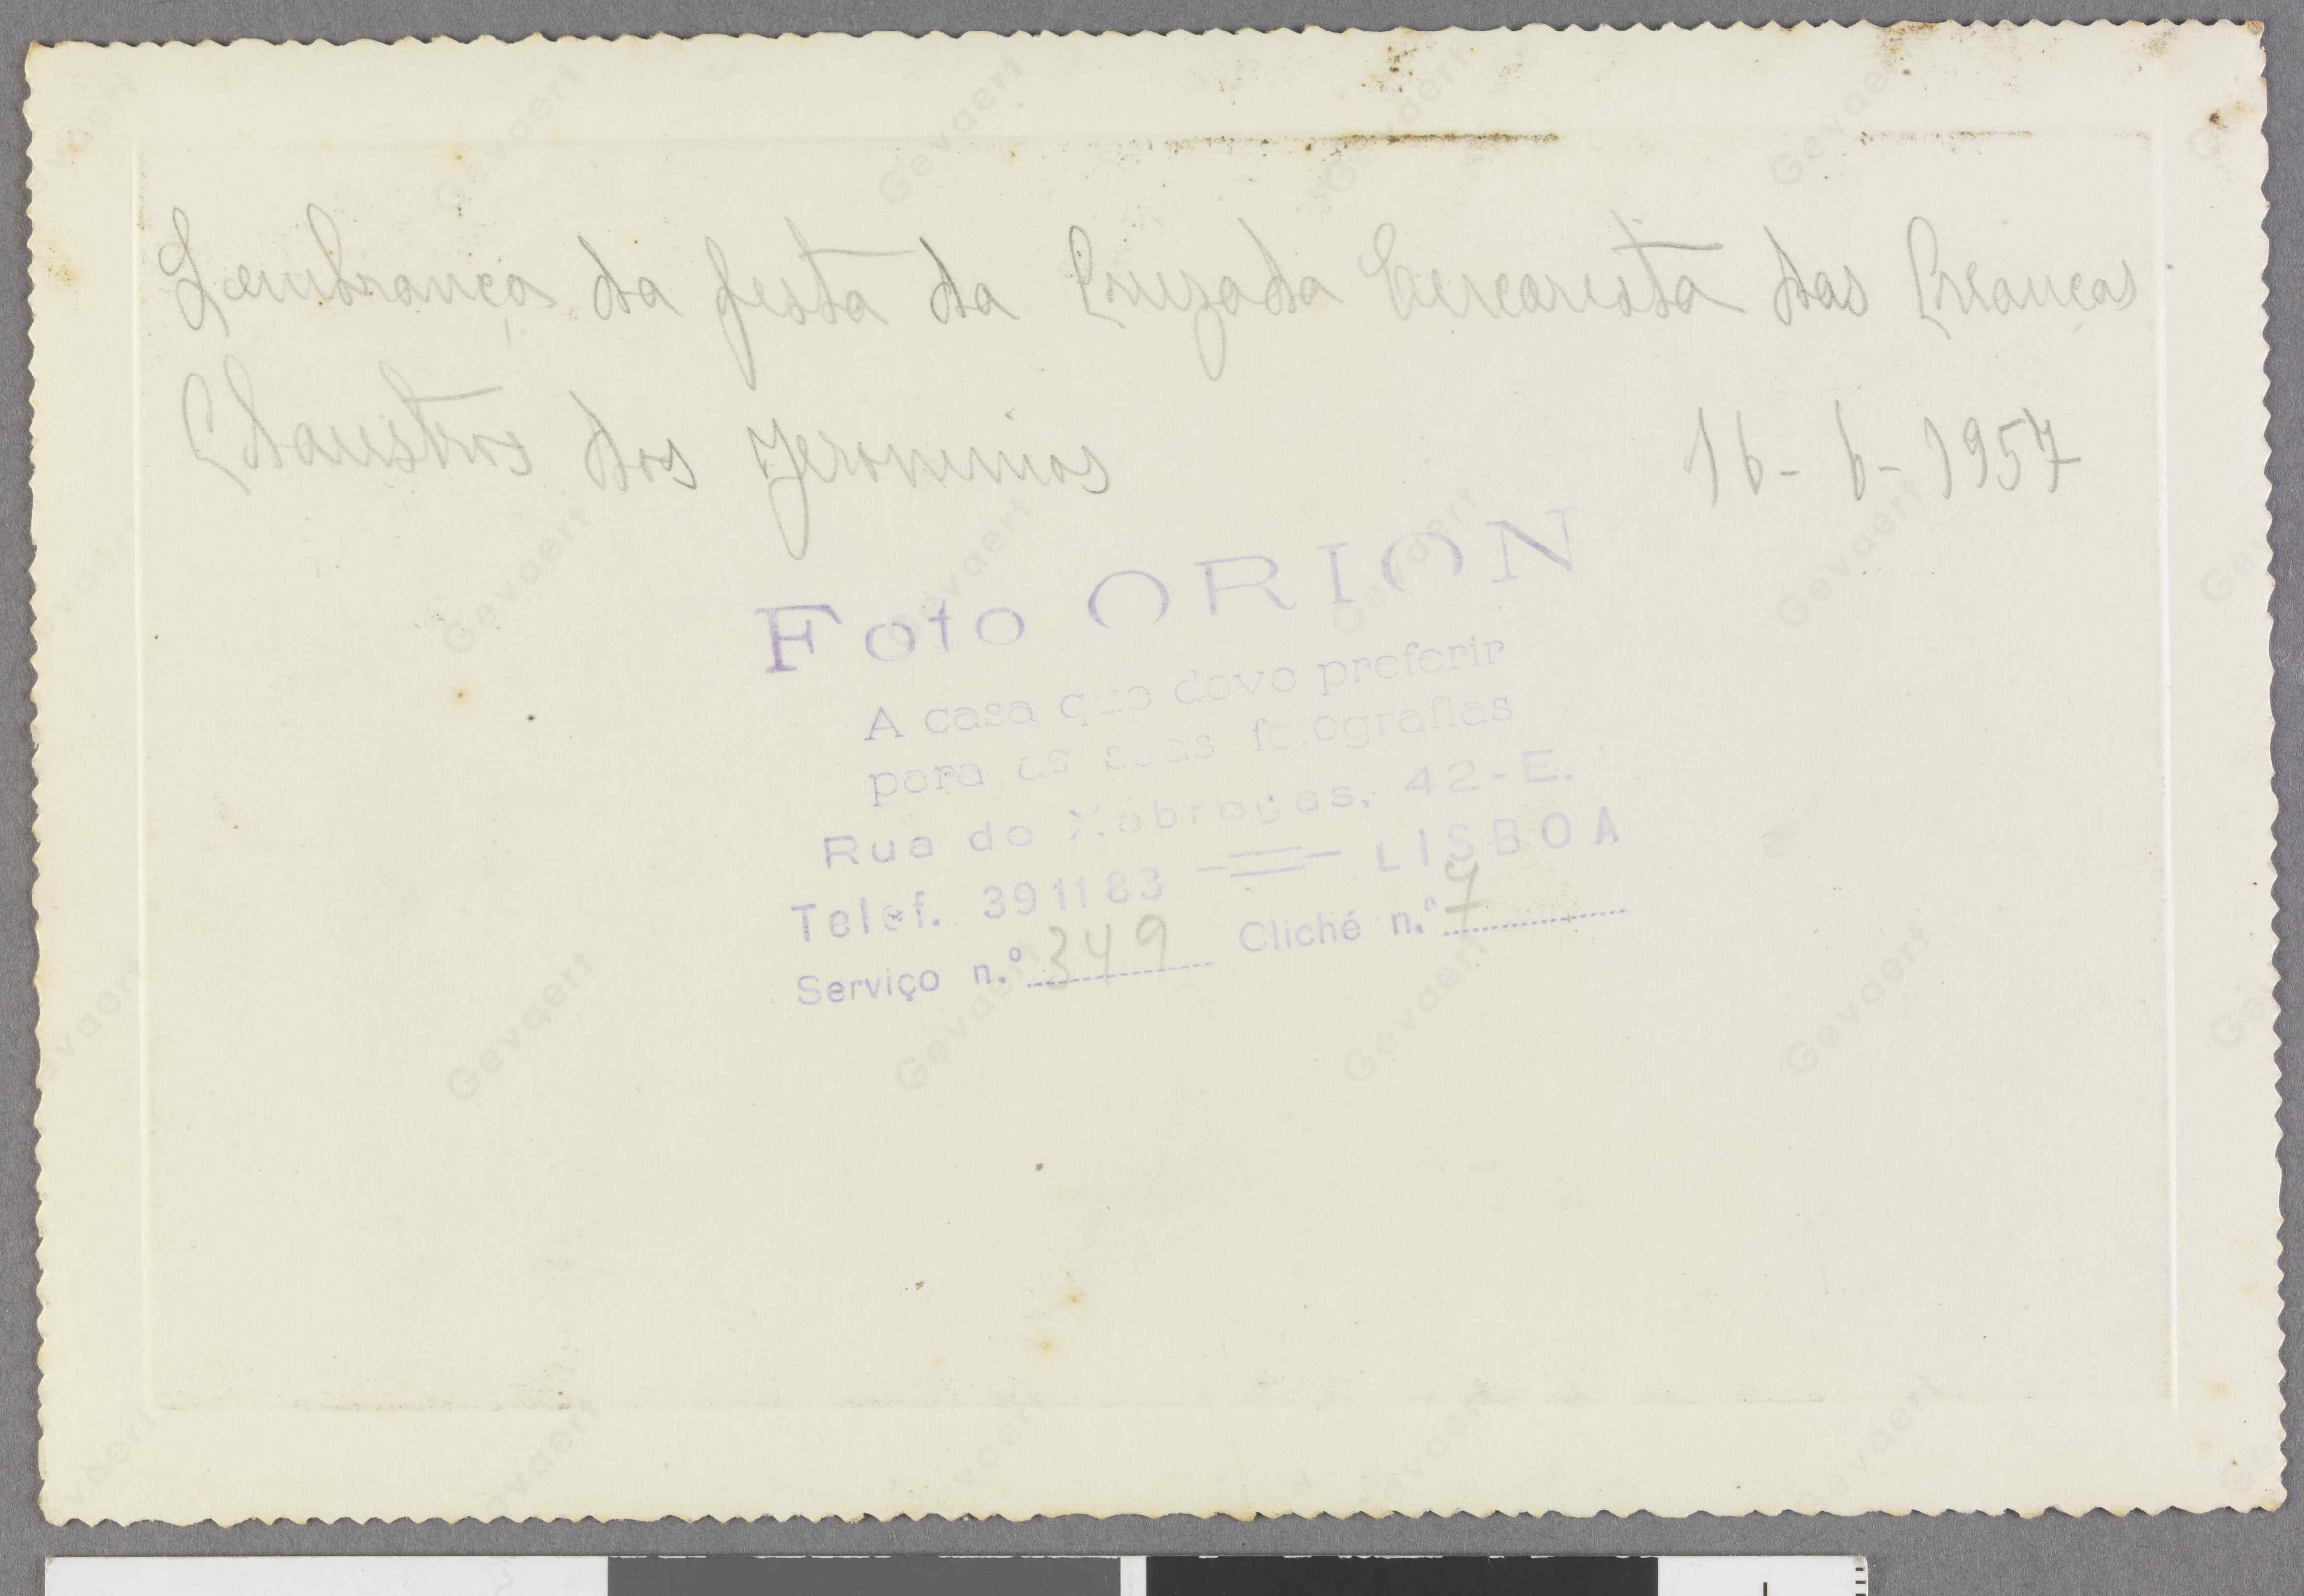 Lembrança da festa da Cruzada Eucarista das Crianças
Claustros dos Jeronimos 16-6-1957
Foto ORION
A casa que deve preferir
para as suas fotografias
Rua de Xabregas, 42-E.
Telef. 391183 LISBOA
Serviço n.º 349 Cliché n.º 7
Gevaert